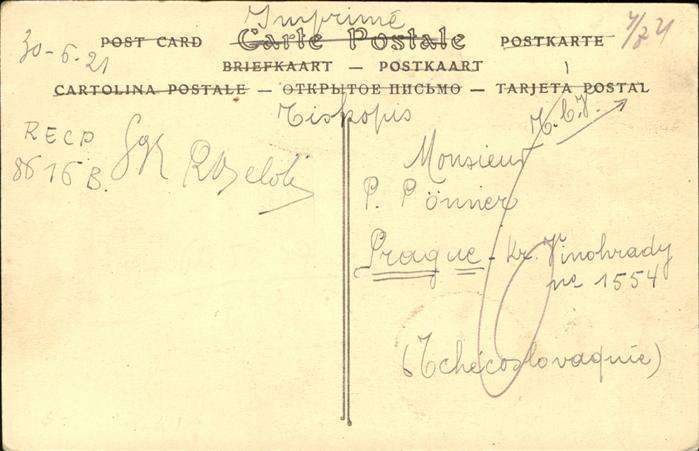 Imprimé
30-6.21
POST CARD Carte Postale POSTKARTE
BRIEFKAART — POSTKAART
CARTOLINA POSTALE — ОТКРЫТОЕ ПИСЬМО — TARJETA POSTAL
Tiskopis
RECP
B.
Monsieur
P. Pönner
Prague - Kr. Vinohrady
no 1554
(Tchécoslovaquie)